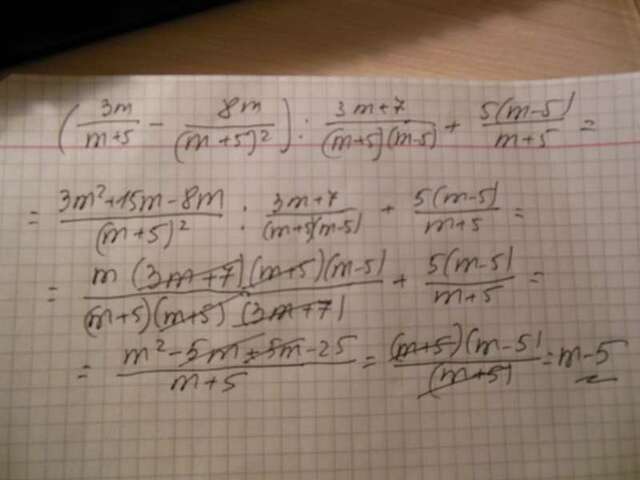 (3m/(m+5) - 8m/(m+5)²) : (3m+7)/((m+5)(m-5)) + 5(m-5)/(m+5) =
= (3m²+15m-8m)/(m+5)² : (3m+7)/((m+5)(m-5)) + 5(m-5)/(m+5) =
= m(3m+7)(m+5)(m-5)/((m+5)(m+5)(3m+7)) + 5(m-5)/(m+5) =
= (m²-5m+5m-25)/(m+5) = (m+5)(m-5)/(m+5) = m-5